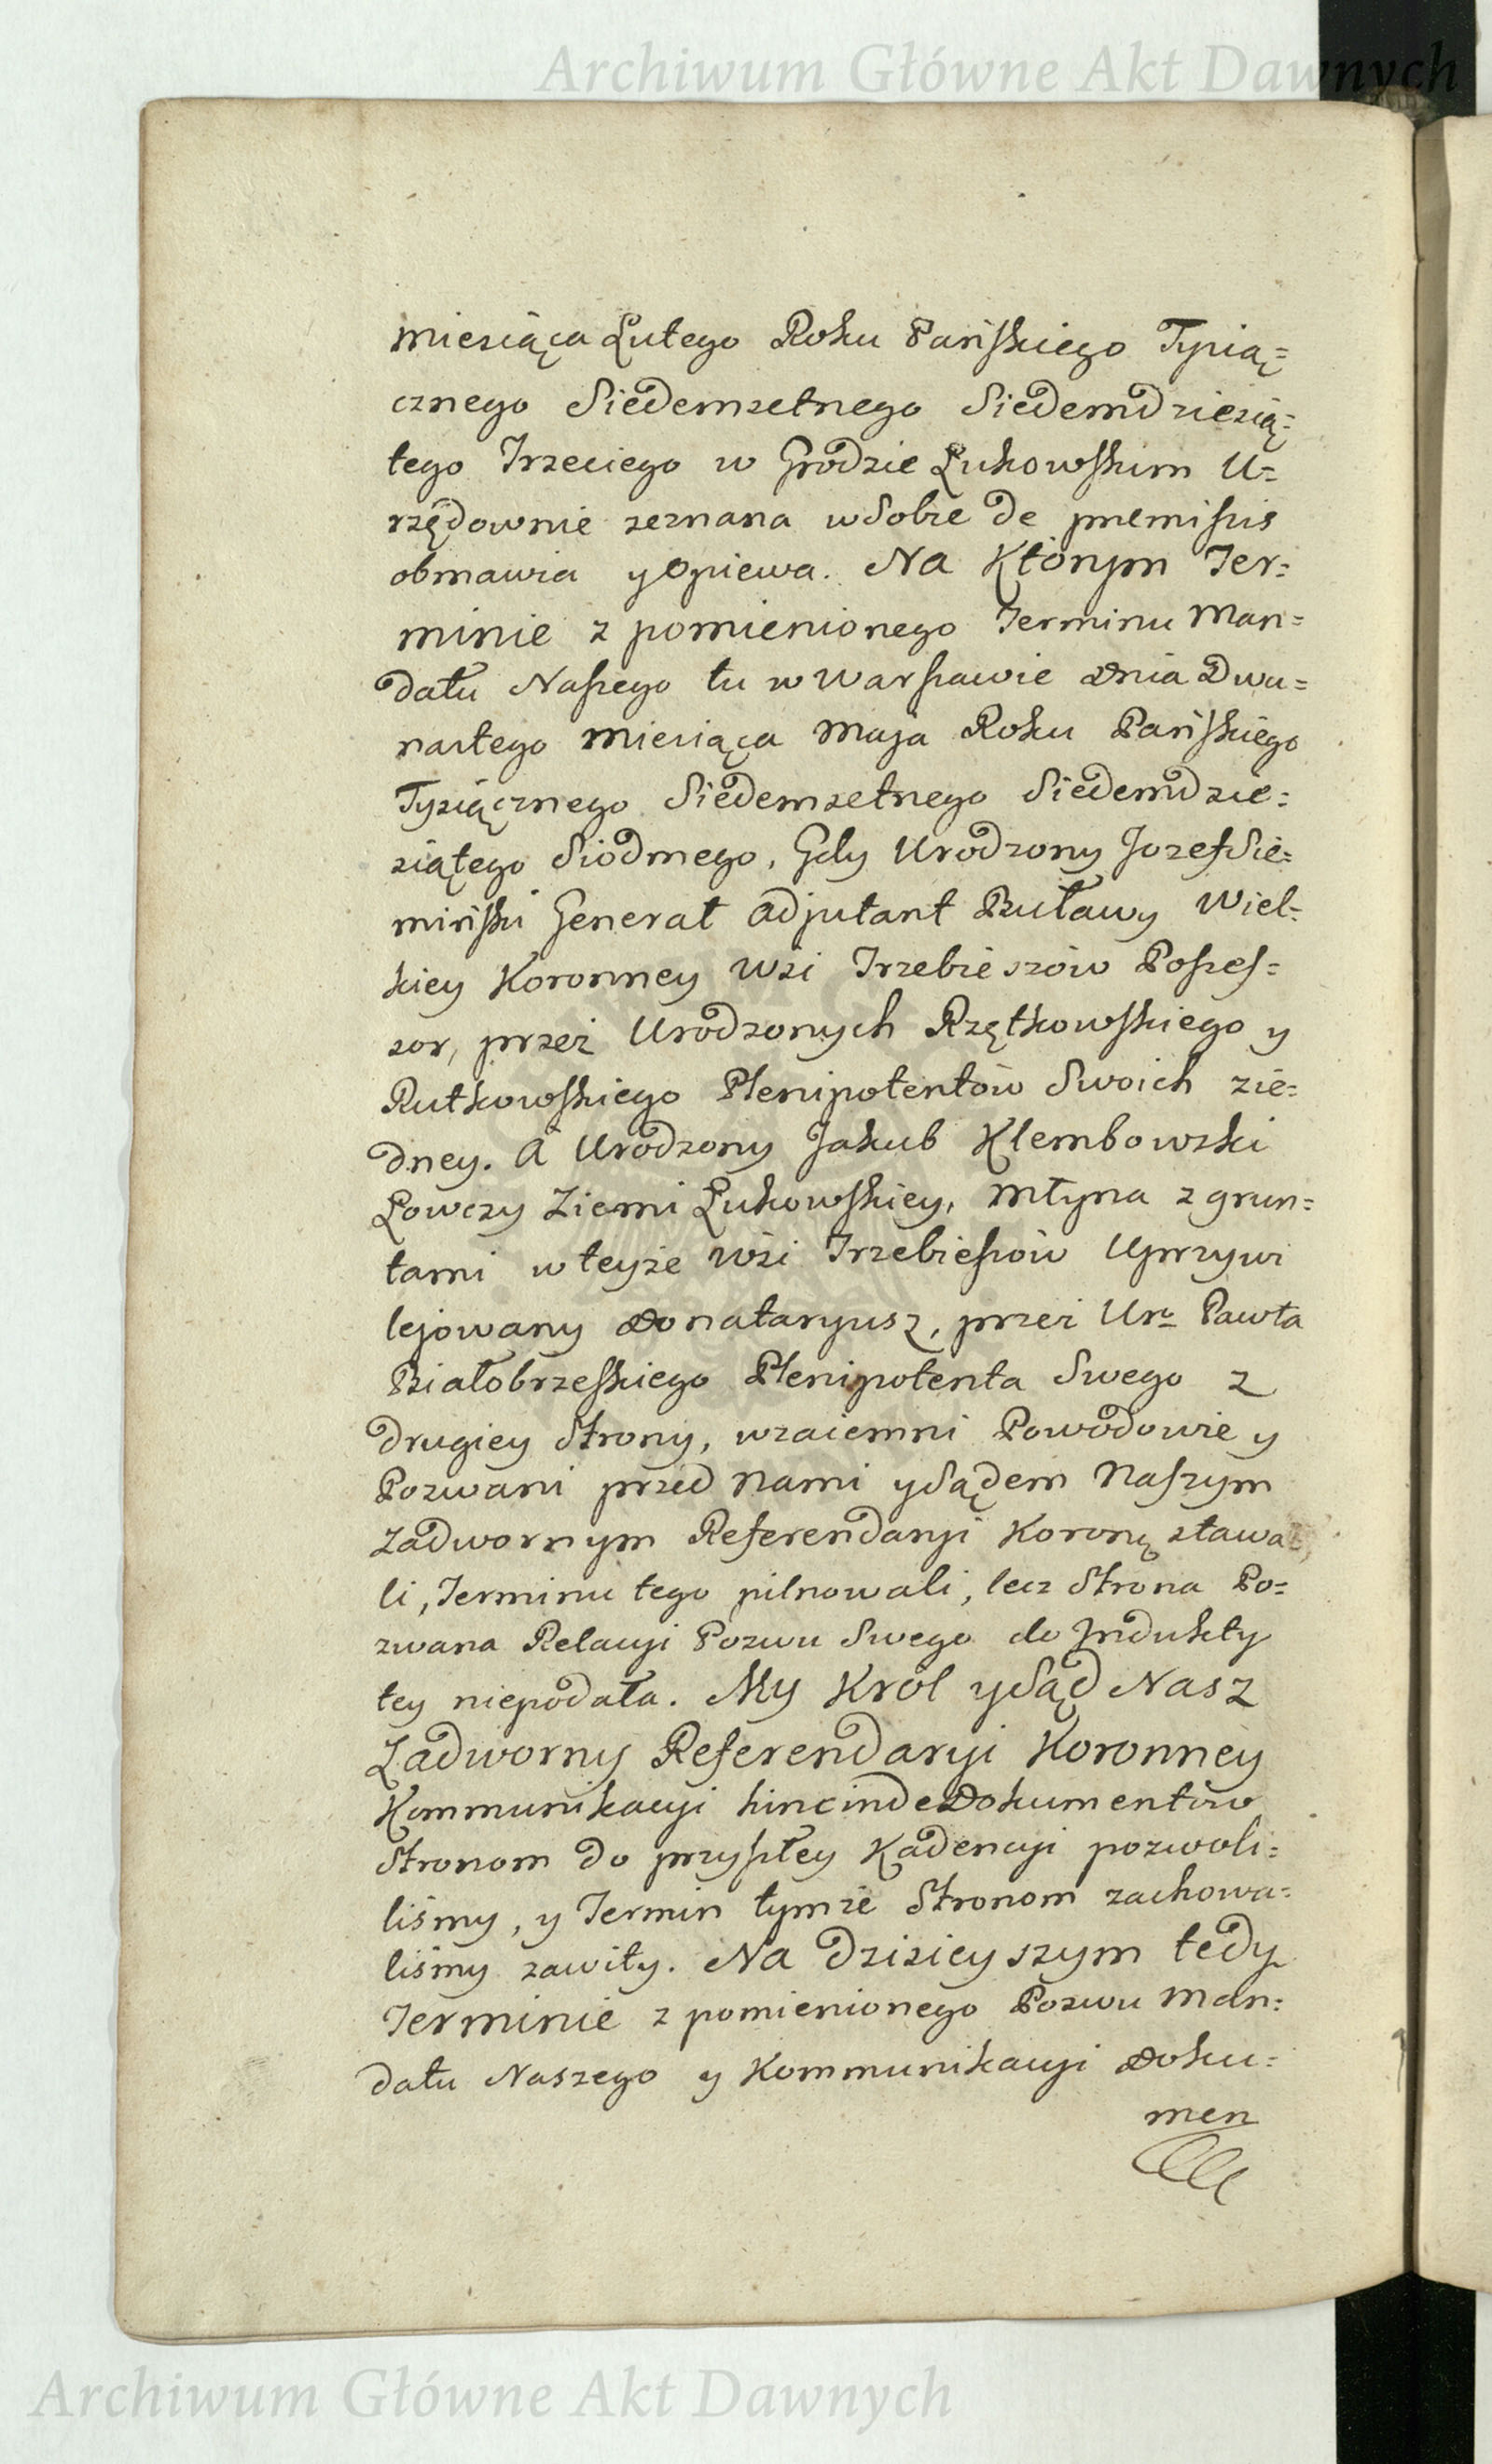 Archiwum Główne Akt Dawnych
Miesiąca Lutego Roku Pańskiego Tysią=
cznego Siedemsetnego Siedemdziesią=
tego Trzeciego w Grodzie Łukowskim U=
rzędownie zeznana w Sobie de premissis
obmawia y Opiewa. Na Którym Ter=
minie z pomienionego Terminu Man=
datu Naszego tu w Warszawie Dnia Dwu=
nastego Miesiąca Maja Roku Pańskiego
Tysiącznego Siedemsetnego Siedemdzie=
siątego Siódmego, Gdy Urodzony Jozef Sie=
miński Generał Adjutant Buławy Wiel=
kiey Koronney Wsi Trzebieszów Posses=
sor, przez Urodzonych Rzętkowskiego y
Rutkowskiego Plenipotentów Swoich zie=
dney. A Urodzony Jakub Klembowski
Łowczy Ziemi Łukowskiey, Młyna z grun=
tami w teyże Wsi Trzebieszów Uprzywi
lejowany Donataryusz, przez Urō Pawła
Białobrzeskiego Plenipotenta Swego z
drugiey Strony, wzaiemni Powodowie y
Pozwani przed Nami y Sądem Naszym
Zadwornym Referendaryi Koronę stawa
li, Terminu tego pilnowali, lecz Strona Po=
zwana Relacyi Pozwu Swego do Indukty
tey niepodała. My Król y Sąd Nasz
Zadworny Referendaryi Koronney
Kommunikacyi hincinde Dokumentów
Stronom do przyszłey Kadencyi pozwoli=
liśmy, y Termin tymże Stronom zachowa=
liśmy zawity. Na dzisieyszym tedy
Terminie z pomienionego Pozwu Man=
datu Naszego y Kommunikacyi Doku=
men
Archiwum Główne Akt Dawnych